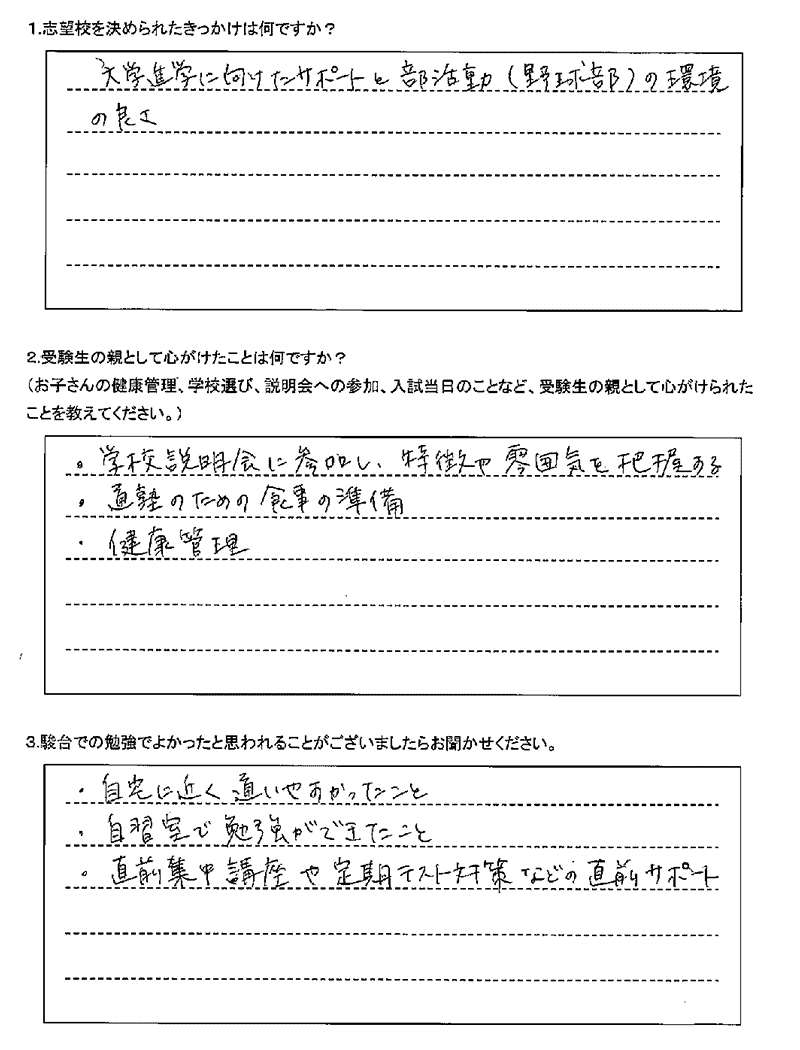 1.志望校を決められたきっかけは何ですか？
大学進学に向けたサポートと部活動（野球部）の環境
の良さ
2.受験生の親として心がけたことは何ですか？
（お子さんの健康管理、学校選び、説明会への参加、入試当日のことなど、受験生の親として心がけられた
ことを教えてください。）
・学校説明会に参加し、特徴や雰囲気を把握する
・通塾のための食事の準備
・健康管理
3.駿台での勉強でよかったと思われることがございましたらお聞かせください。
・自宅に近く通いやすかったこと
・自習室で勉強ができたこと
・直前集中講座や定期テスト対策などの直前サポート